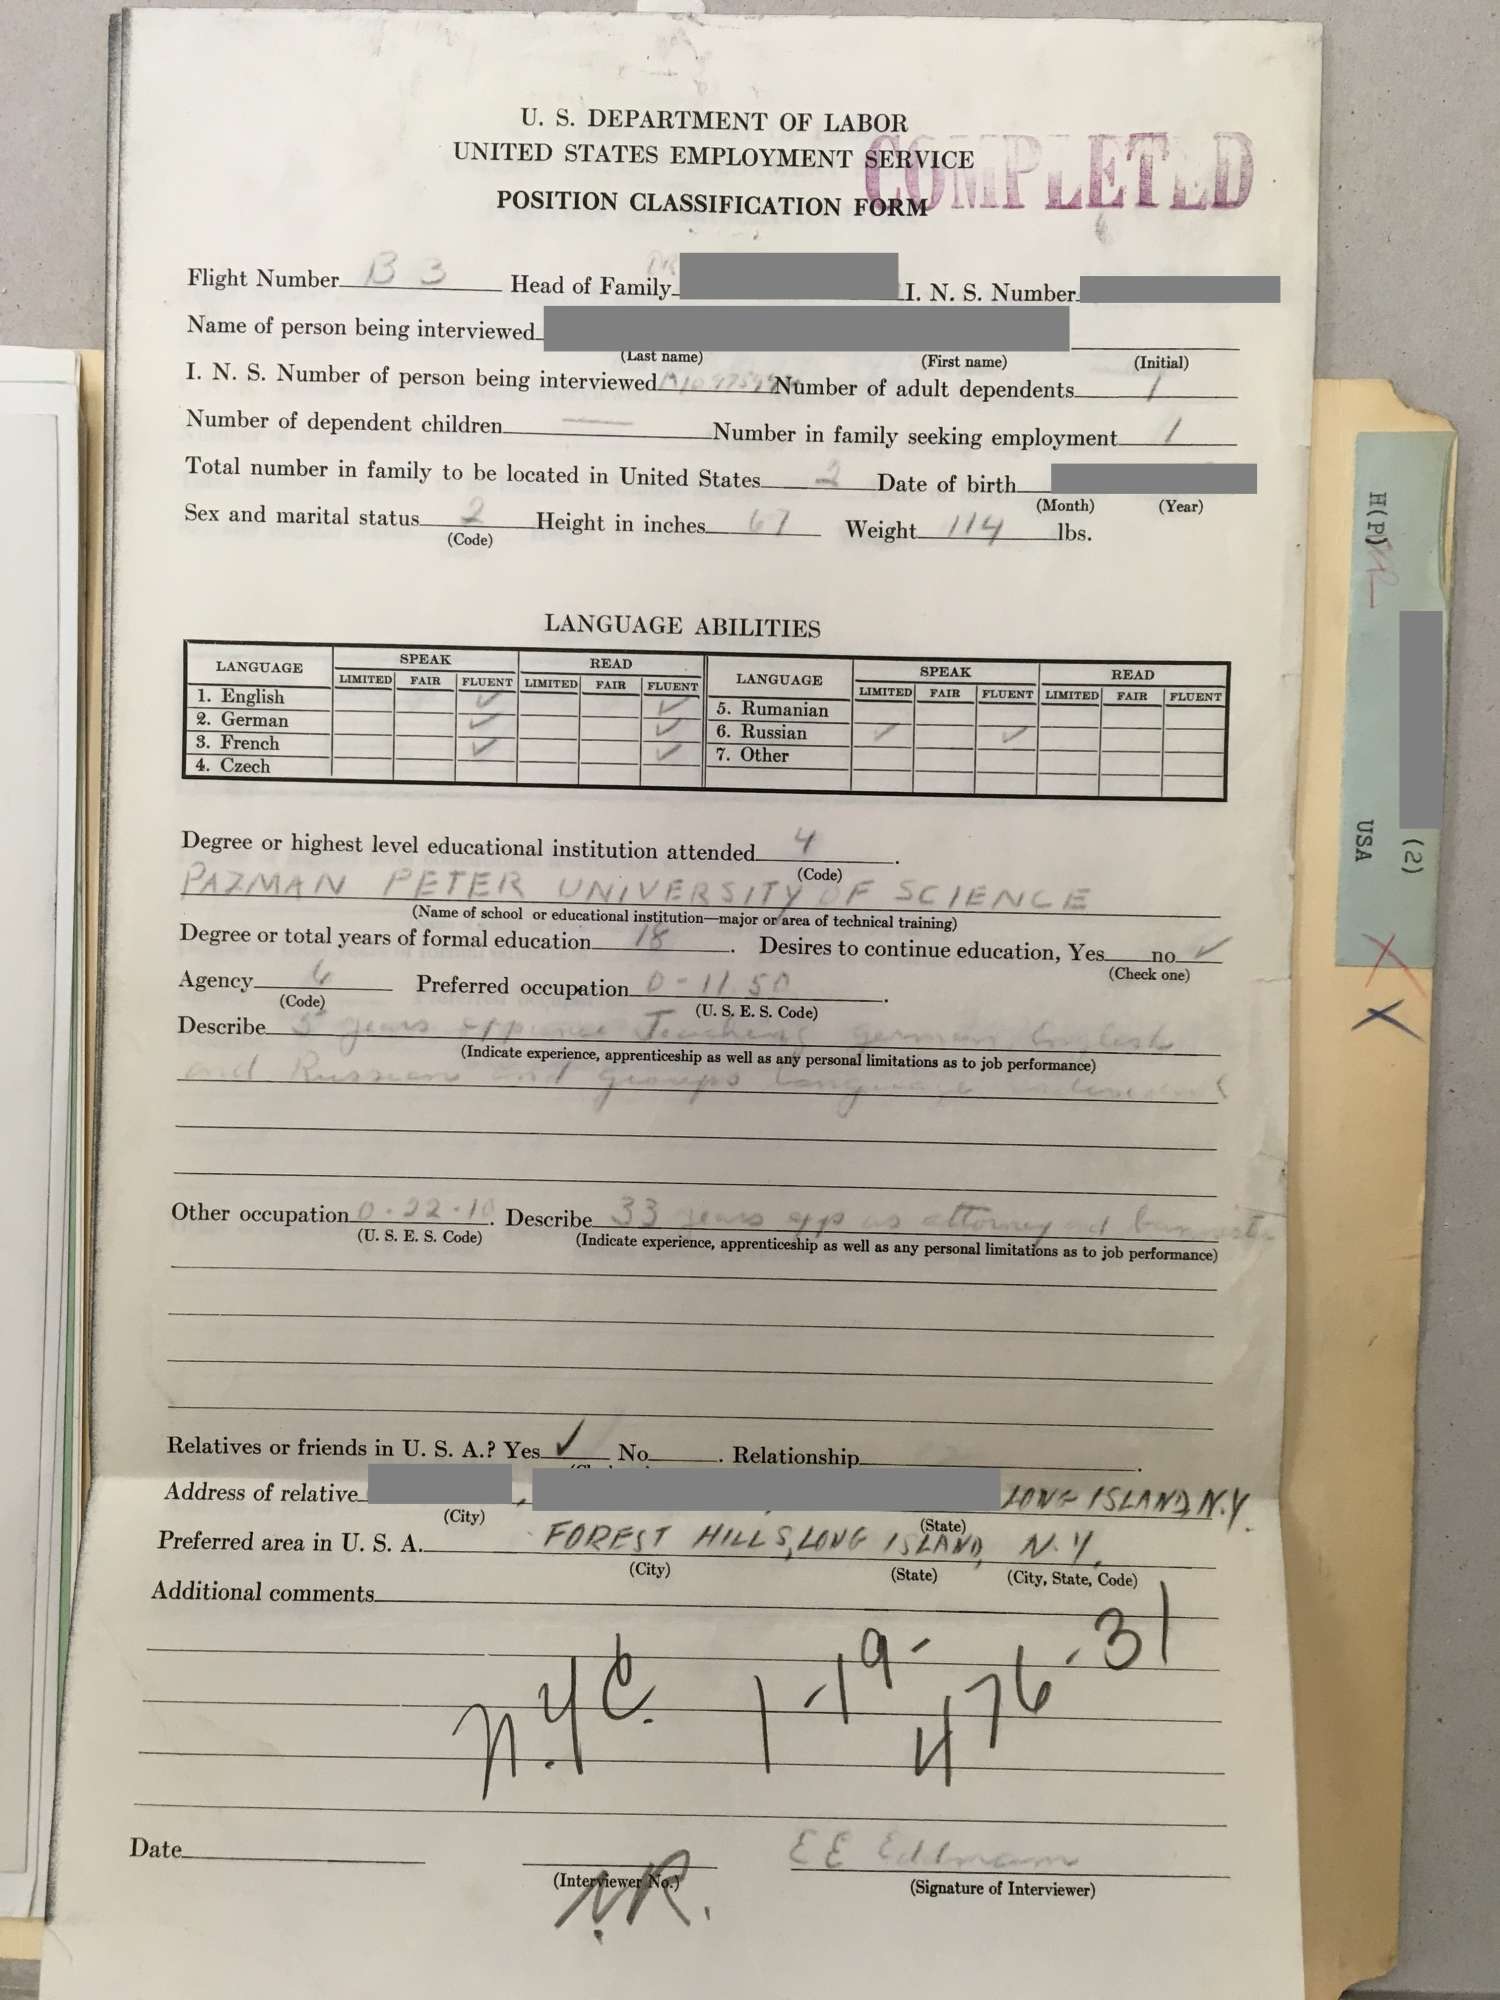 U. S. DEPARTMENT OF LABOR
UNITED STATES EMPLOYMENT SERVICE
COMPLETED
POSITION CLASSIFICATION FORM
Flight Number B 3 Head of Family I. N. S. Number
Name of person being interviewed
(Last name) (First name) (Initial)
I. N. S. Number of person being interviewed Number of adult dependents 1
Number of dependent children — Number in family seeking employment 1
Total number in family to be located in United States 2 Date of birth
(Month) (Year)
Sex and marital status 2 Height in inches 67 Weight 114 lbs.
(Code)
LANGUAGE ABILITIES
LANGUAGE SPEAK READ LANGUAGE SPEAK READ
LIMITED FAIR FLUENT LIMITED FAIR FLUENT LIMITED FAIR FLUENT LIMITED FAIR FLUENT
1. English ✓ ✓ 5. Rumanian
2. German ✓ ✓ 6. Russian ✓ ✓
3. French ✓ ✓ 7. Other
4. Czech
Degree or highest level educational institution attended 4 .
(Code)
PAZMAN PETER UNIVERSITY OF SCIENCE
(Name of school or educational institution—major or area of technical training)
Degree or total years of formal education 18 . Desires to continue education, Yes no ✓
(Check one)
Agency 6 Preferred occupation 0-11.50 .
(Code) (U. S. E. S. Code)
Describe 5 years Teacher German English
(Indicate experience, apprenticeship as well as any personal limitations as to job performance)
and Russian and groups language
Other occupation 0-22-10 . Describe 33 years exp as attorney and
(U. S. E. S. Code) (Indicate experience, apprenticeship as well as any personal limitations as to job performance)
Relatives or friends in U. S. A.? Yes ✓ No . Relationship .
Address of relative , LONG ISLAND, N.Y.
(City) (State)
Preferred area in U. S. A. FOREST HILLS, LONG ISLAND, N.Y.
(City) (State) (City, State, Code)
Additional comments
N.Y.C. 1-19- 476-31
Date
(Interviewer No.) (Signature of Interviewer)
N.R.
H(P)
USA
(2)